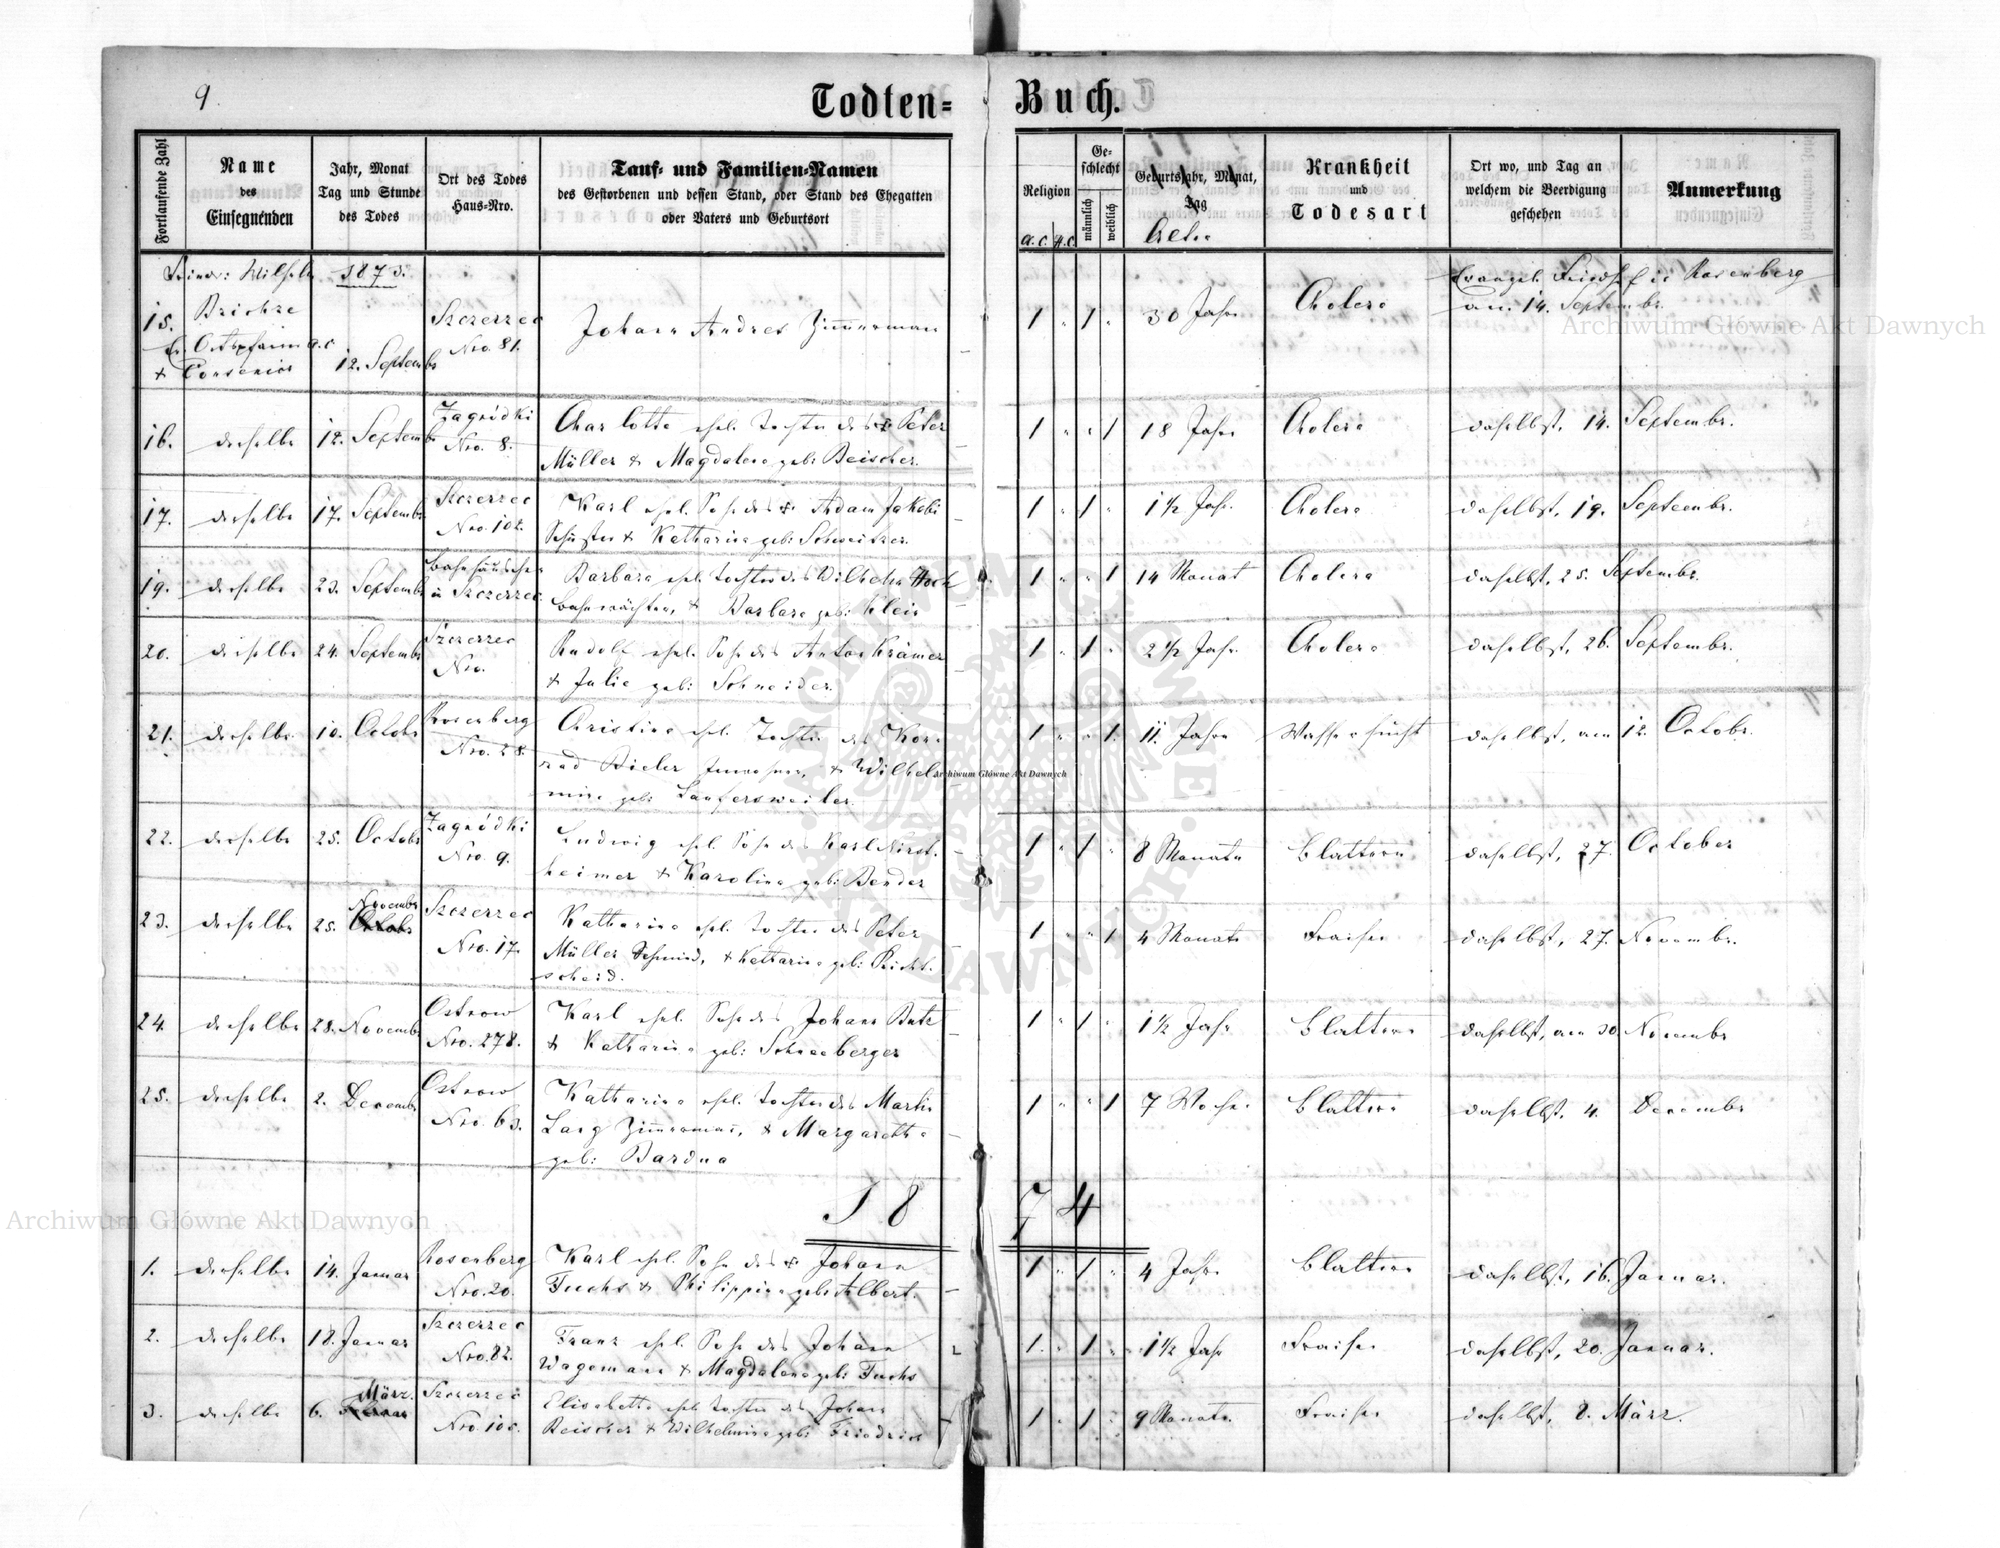 9.
Todten-Buch.
Fortlaufende Zahl
Name
des
Einsegnenden
Jahr, Monat
Tag und Stunde
des Todes
Ort des Todes
Haus-Nro.
Tauf- und Familien-Namen
des Gestorbenen und dessen Stand, oder Stand des Ehegatten
oder Vaters und Geburtsort
Religion
a.c. h.c.
Ge-
schlecht
männlich
weiblich
Geburtsjahr, Monat,
Tag
Alter
Krankheit
und
Todesart
Ort wo, und Tag an
welchem die Beerdigung
geschehen
Anmerkung
1873.
15. 12. Septembr Szczerzec Nro. 81. Johann Andres Zimmermann 1 " 1 " 30 Jahre Cholera Evangel. Friedhof in Rosenberg
am 14. Septembr.
16. derselbe 12. Septembr Zagródki Nro. 8. Charlotte ehel. Tochter des Peter
Müller & Magdalena geb: Beischer. 1 " " 1 18 Jahre Cholera daselbst, 14. Septembr.
17. derselbe 17. Septembr Szczerzec Nro. 102. Karl ehel. Sohn des Adam Jakobi
Schuster & Katharina geb: Schweitzer. 1 " 1 " 1½ Jahr Cholera daselbst, 19. Septembr.
19. derselbe 23. Septembr Bahnhäuschen in Szczerzec Barbara ehel. Tochter des Wilhelm Hock
Bahnwächter, & Barbara geb: Klein 1 " " 1 14 Monat Cholera daselbst, 25. Septembr.
20. derselbe 24. Septembr Szczerzec Nro. Rudolf ehel. Sohn des Anton Krämer
& Julie geb: Schneider. 1 " 1 " 2½ Jahr Cholera daselbst, 26. Septembr.
21. derselbe 10. Octobr Rosenberg Nro. 28. Christina ehel. Tochter des Kon-
rad Bieler & Wilhel-
mine geb: Laufersweiler. 1 " " 1. 11. Jahre Wassersucht daselbst, am 12. Octobr.
22. derselbe 25. Octobr Zagródki Nro. 9. Ludwig ehel. Sohn des Karl
heimer & Karolina geb: Bender 1 " 1 " 8 Monate Blattern daselbst, 27. October
23. derselbe 25. Novembr Szczerzec Nro. 17. Katharina ehel. Tochter des Peter
Müller Schmied, & Katharina geb: Bricht-
scheid. 1 " " 1 4 Monate Fraisen daselbst, 27. Novembr.
24. derselbe 28. Novembr Ostrow Nro. 278. Karl ehel. Sohn des Johann Butz
& Katharina geb: Schneeberger 1 " 1 " 1½ Jahr Blattern daselbst, am 30. Novembr
25. derselbe 2. Decembr Ostrow Nro. 63. Katharina ehel. Tochter des Martin
Lang Zimmermann, & Margaretha
geb: Bardua 1 " " 1 7 Wochen Blattern daselbst, 4. Decembr
1874
1. derselbe 14. Januar Rosenberg Nro. 20. Karl ehel. Sohn des Johann
Fuchs & Philippina geb: Albert. 1 " 1 " 4 Jahre Blattern daselbst, 16. Januar.
2. derselbe 18. Januar Szczerzec Nro. 82. Franz ehel. Sohn des Johann
Wagemann & Magdalena geb: Fuchs 1. " 1 " 1½ Jahr Fraisen daselbst, 20. Januar.
3. derselbe 6. März. Szczerzec Nro. 105. Elisabetha ehel. Tochter des Johann
Beischer & Wilhelmina geb: Friedrich 1 " 1 " 9 Monate Fraisen daselbst, 8. März.
Archiwum Główne Akt Dawnych
Archiwum Główne Akt Dawnych
Archiwum Główne Akt Dawnych
ARCHIWUM GŁÓWNE AKT DAWNYCH